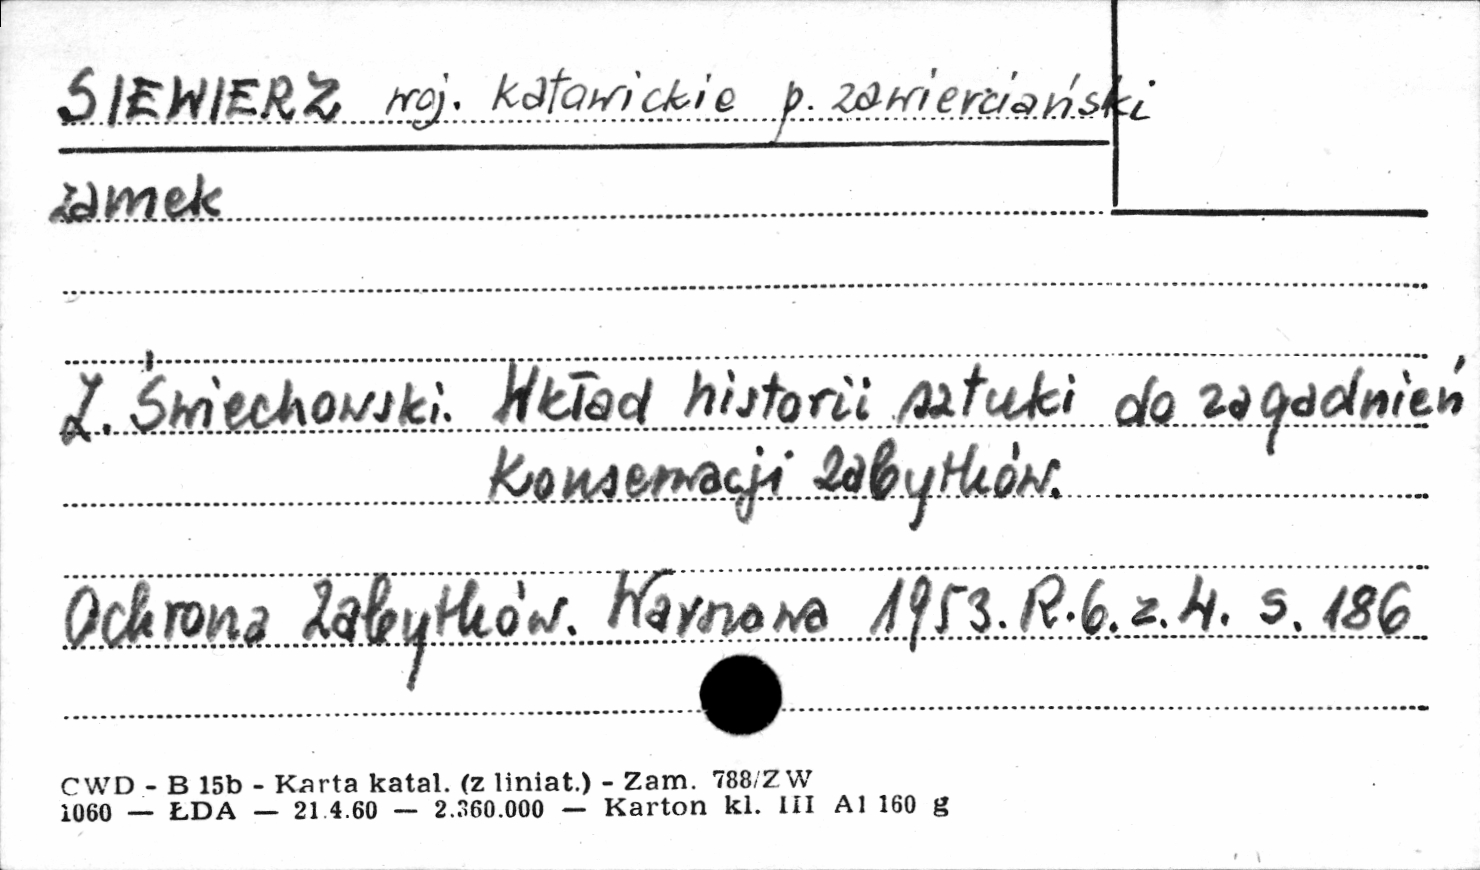 SIEWIERZ woj. katowickie p. zawierciański
zamek
Z. Świechowski. Wkład historii sztuki do zagadnień
konserwacji zabytków.
Ochrona Zabytków. Warszawa 1953. R.6. z. 4. s. 186
CWD - B 15b - Karta katal. (z liniat.) - Zam. 788/ZW
1060 — ŁDA — 21.4.60 — 2.360.000 — Karton kl. III A1 160 g